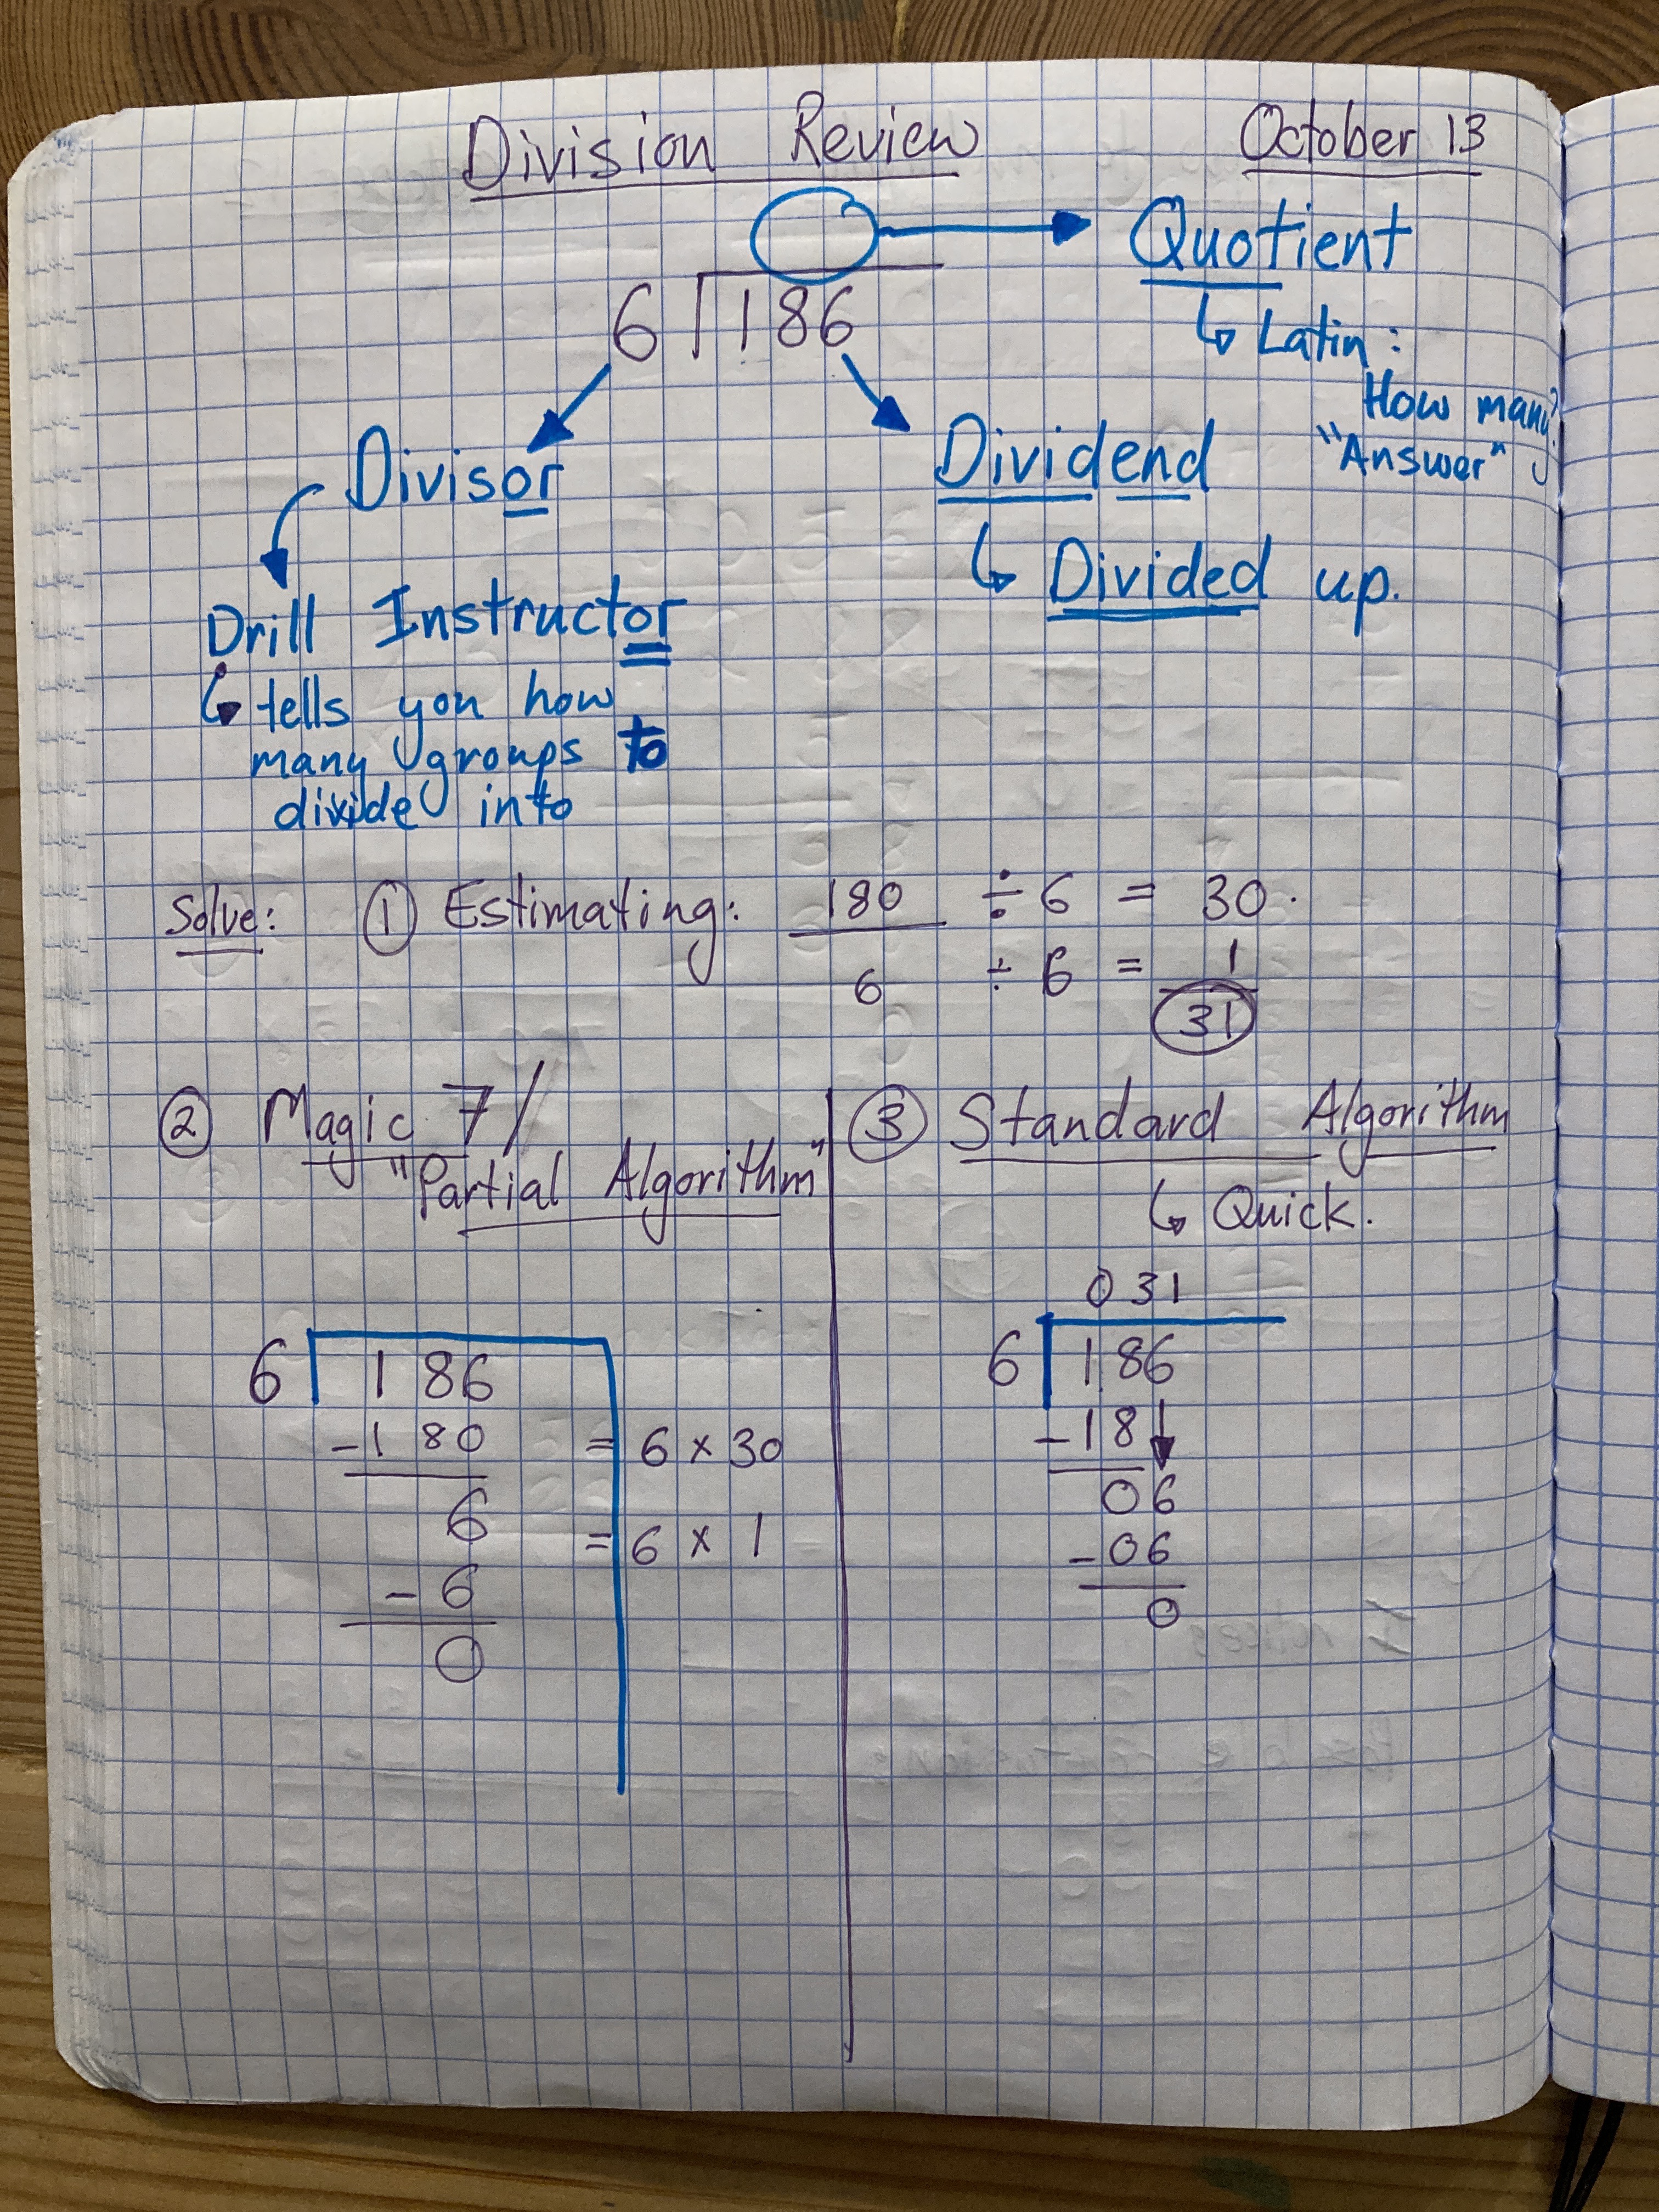 Division Review October 13
Quotient
↳ Latin:
How many?
"Answer"
6 186
Divisor
Dividend
↳ Divided up.
Drill Instructor
↳ tells you how
many groups to
divide into
Solve: ① Estimating: 180 ÷ 6 = 30.
6 ÷ 6 = 1
31
② Magic 7/
"Partial Algorithm"
6 186
-180 = 6 × 30
6 = 6 × 1
-6
0
③ Standard Algorithm
↳ Quick.
031
6 186
-18
06
-06
0